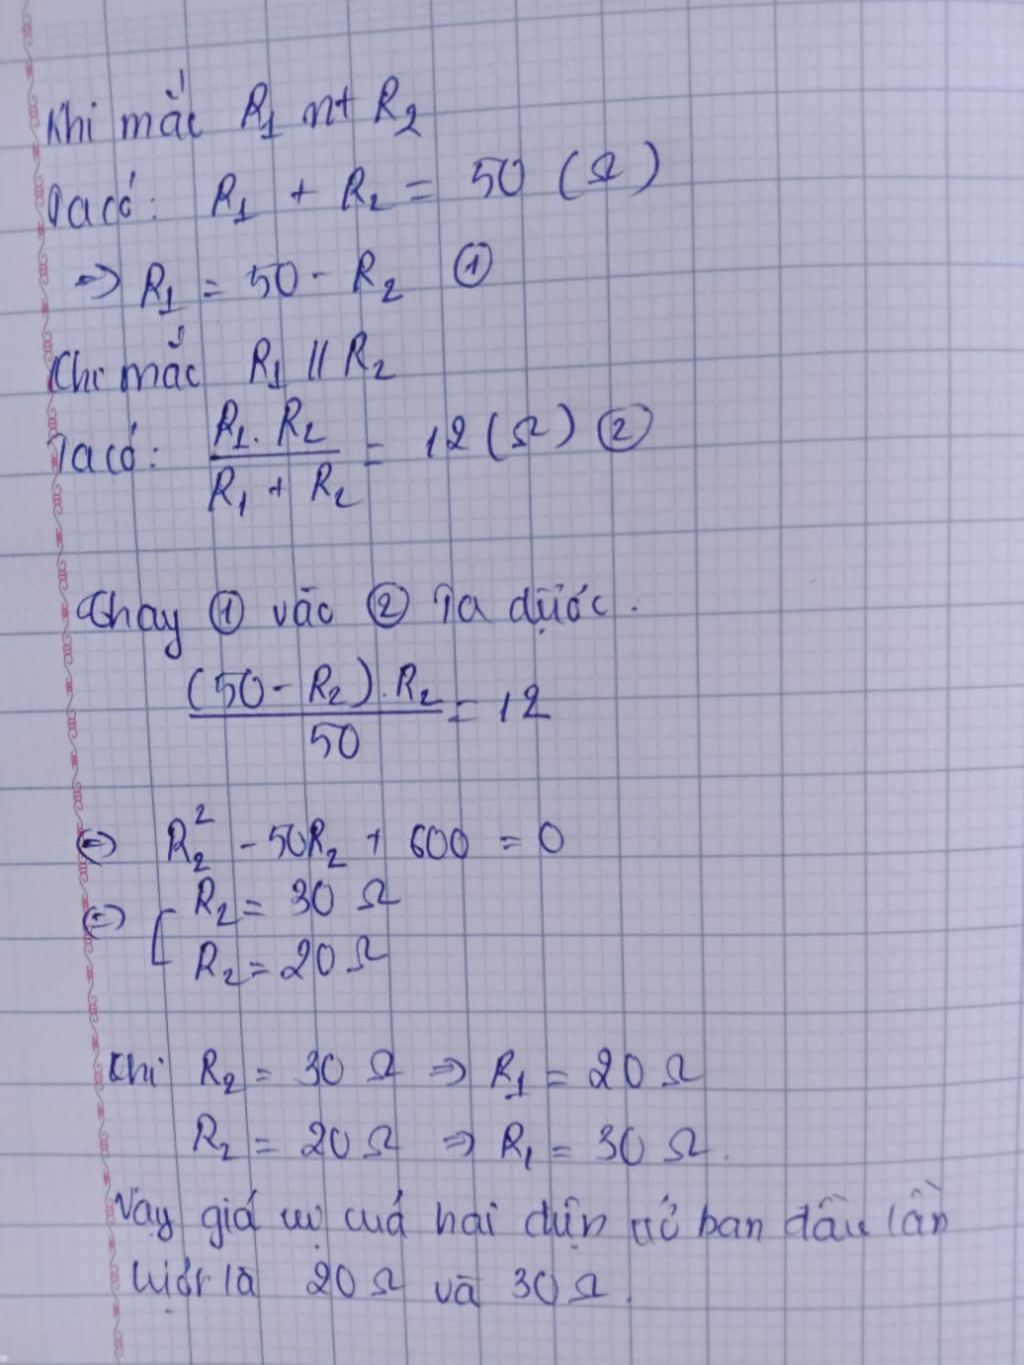 Khi mắc R₁ nt R₂
Ta có: R₁ + R₂ = 50 (Ω)
=> R₁ = 50 - R₂ ①
Khi mắc R₁ // R₂
Ta có: \frac{R₁. R₂}{R₁ + R₂} = 12 (Ω) ②
Thay ① vào ② Ta được.
\frac{(50 - R₂). R₂}{50} = 12
<=> R₂² - 50R₂ + 600 = 0
<=> [ R₂ = 30 Ω
R₂ = 20 Ω
Khi R₂ = 30 Ω => R₁ = 20 Ω
R₂ = 20 Ω => R₁ = 30 Ω.
Vậy giá trị cuả hai điện trở ban đầu lần
lượt là 20 Ω và 30 Ω.